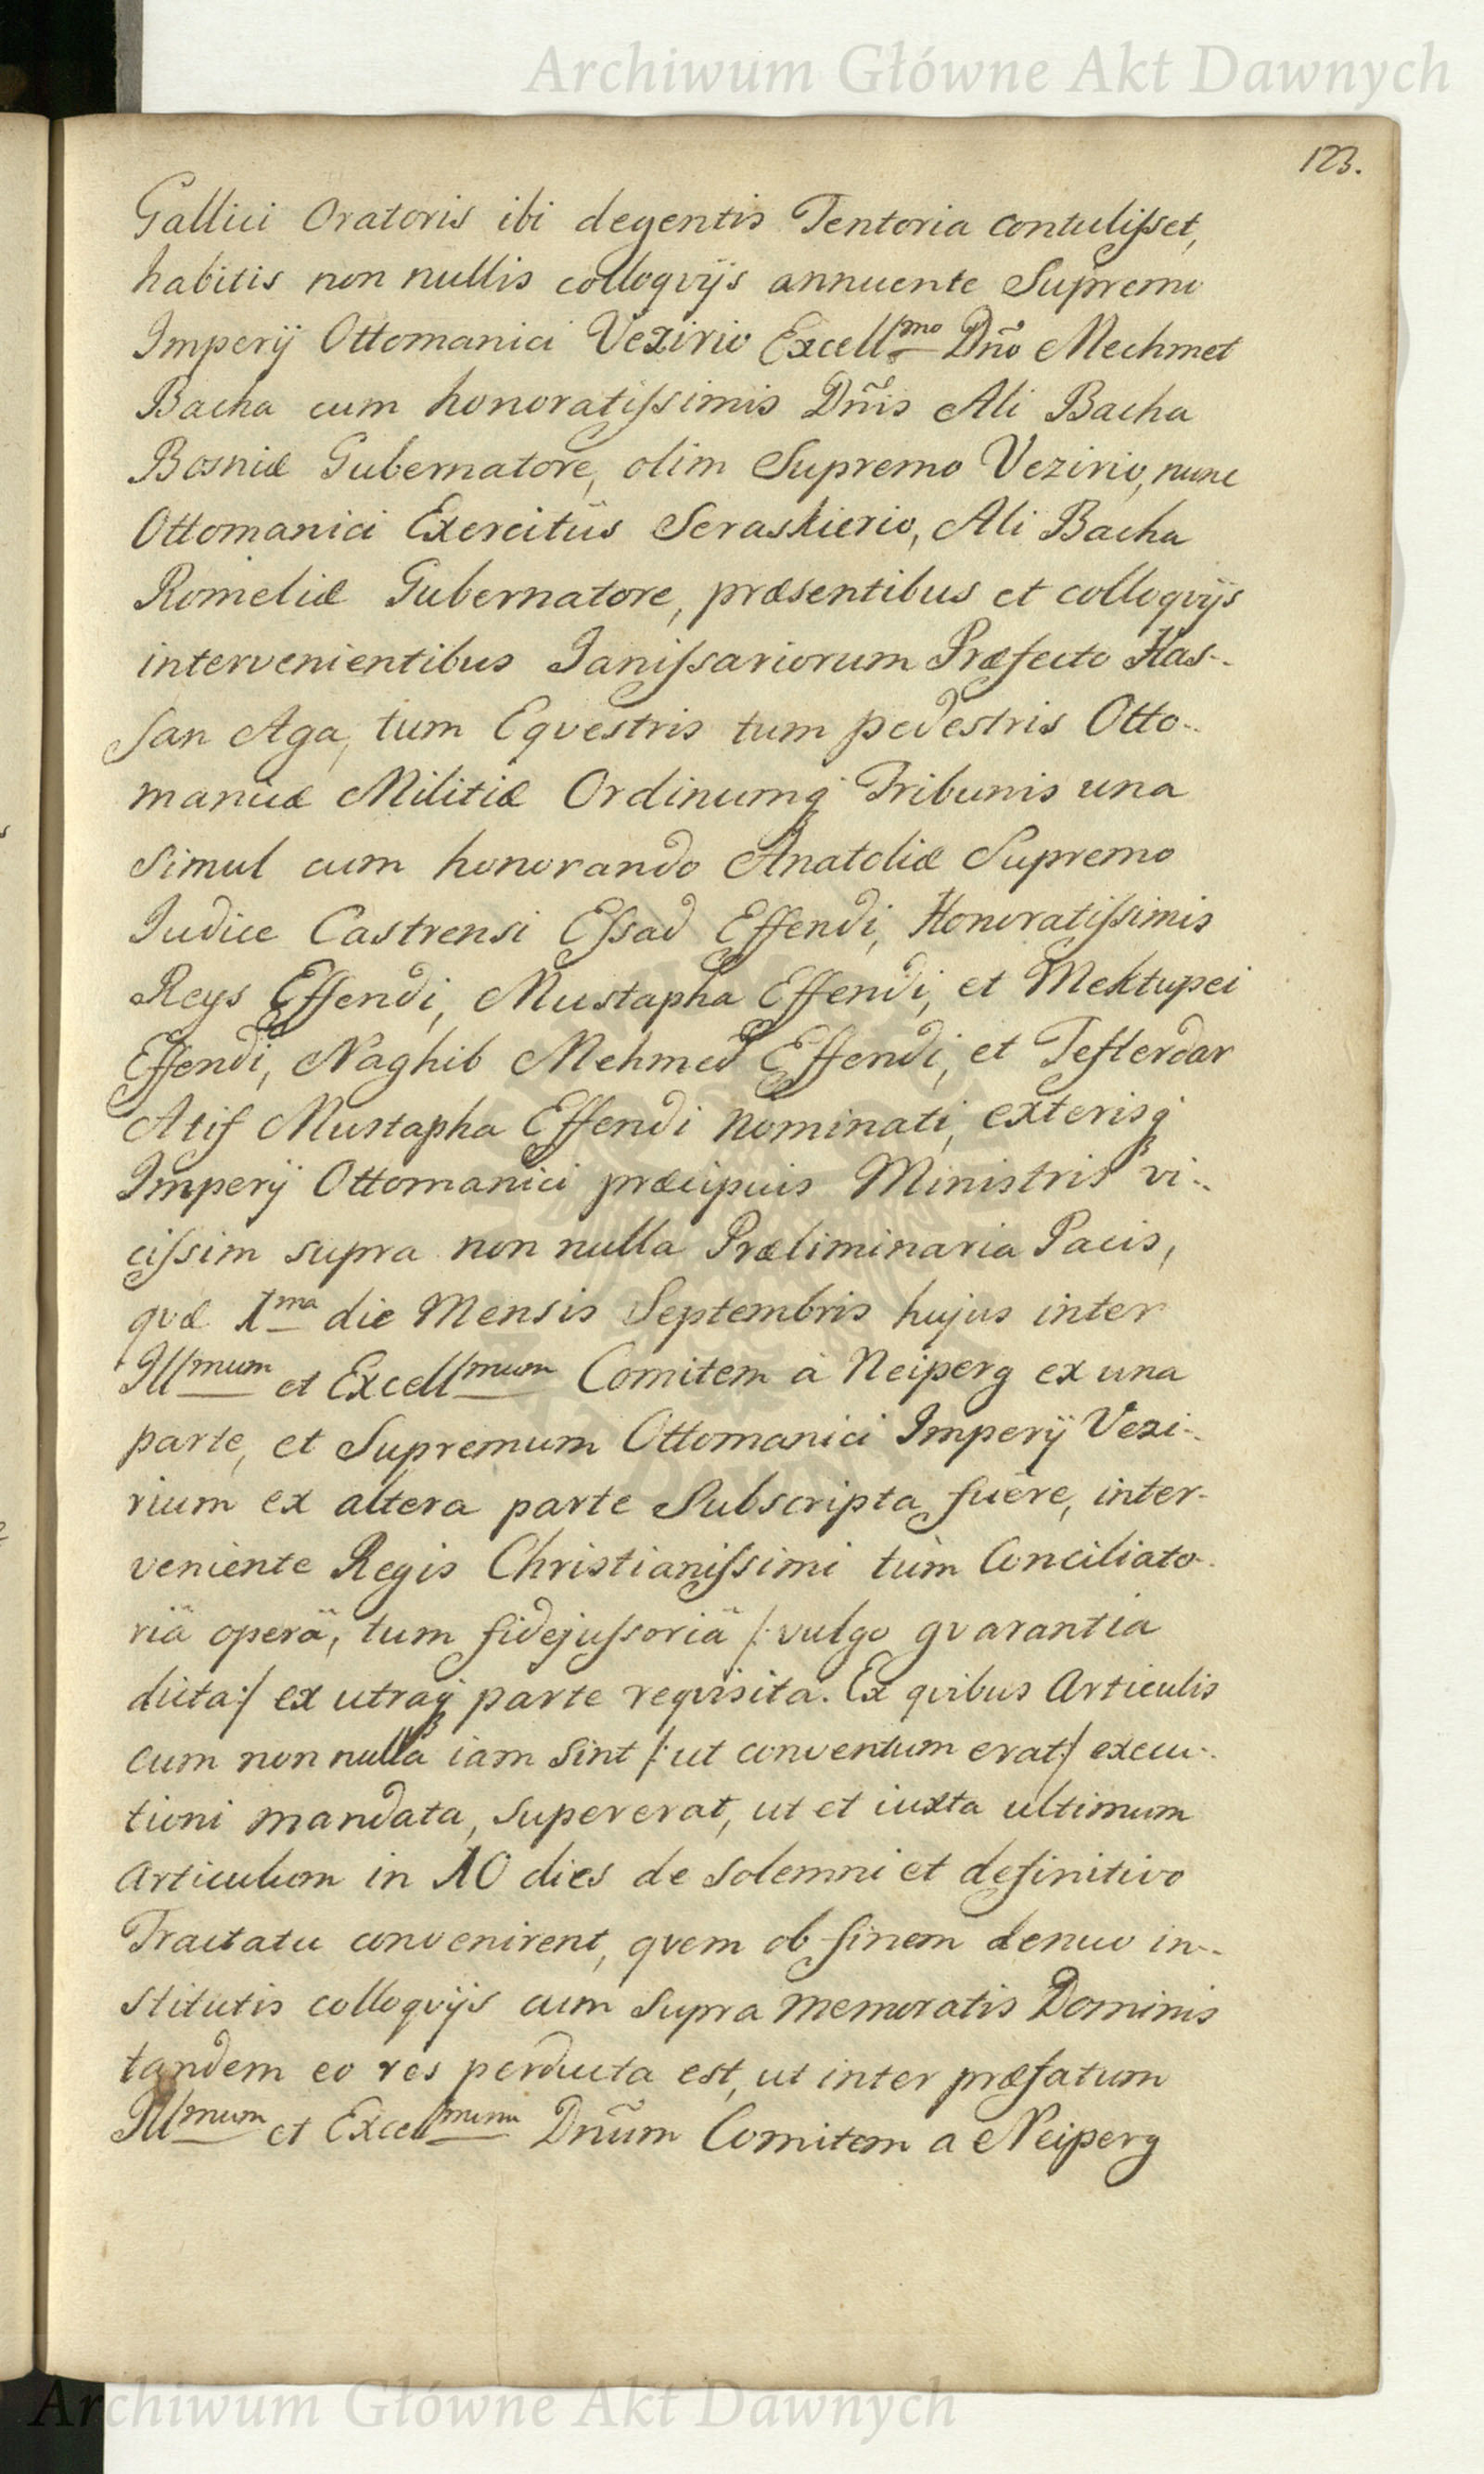 Archiwum Główne Akt Dawnych
123.
Gallici Oratoris ibi degentis Tentoria contulisset,
habitis non nullis colloqvijs annuente Supremo
Imperij Ottomanici Vezirio Excellmo Dño Mechmet
Bacha cum honoratissimis Dñis Ali Bacha
Bosniæ Gubernatore, olim Supremo Vezirio, nunc
Ottomanici Exercitûs Seraskierio, Ali Bacha
Romeliæ Gubernatore, præsentibus et colloqvijs
intervenientibus Janissariorum Præfecto Has-
san Aga, tum Eqvestris tum pedestris Otto-
manicæ Militiæ Ordinumq Tribunis una
simul cum honorando Anatoliæ Supremo
Judice Castrensi Essad Effendi, Honoratissimis
Reys Effendi, Mustapha Effendi, et Mektupci
Effendi, Naghib Mehmed Effendi, et Tefterdar
Atif Mustapha Effendi nominati, exterisq
Imperij Ottomanici præcipuis Ministris vi-
cissim supra non nulla Præliminaria Pacis,
qvæ 1ma die Mensis Septembris hujus inter
Illmum et Excellmum Comitem à Neiperg ex una
parte, et Supremum Ottomanici Imperij Vezi-
rium ex altera parte Subscripta fuêre, inter-
veniente Regis Christianissimi tùm Conciliato-
riâ operâ, tum fidejussoriâ /: vulgo gvarantia
dicta :/ ex utraq parte reqvisita. Ex qvibus Articulis
cum non nulla iam sint /: ut conventum erat :/ execu-
tioni mandata, supererat, ut et iuxta ultimum
Articulum in 10 dies de solemni et definitivo
Tractatu convenirent, qvem ob finem denuo in-
stitutis colloqvijs cum supra memoratis Dominis
tandem eo res perducta est, ut inter præfatum
Illmum et Excellmum Dnũm Comitem a Neiperg
Archiwum Główne Akt Dawnych